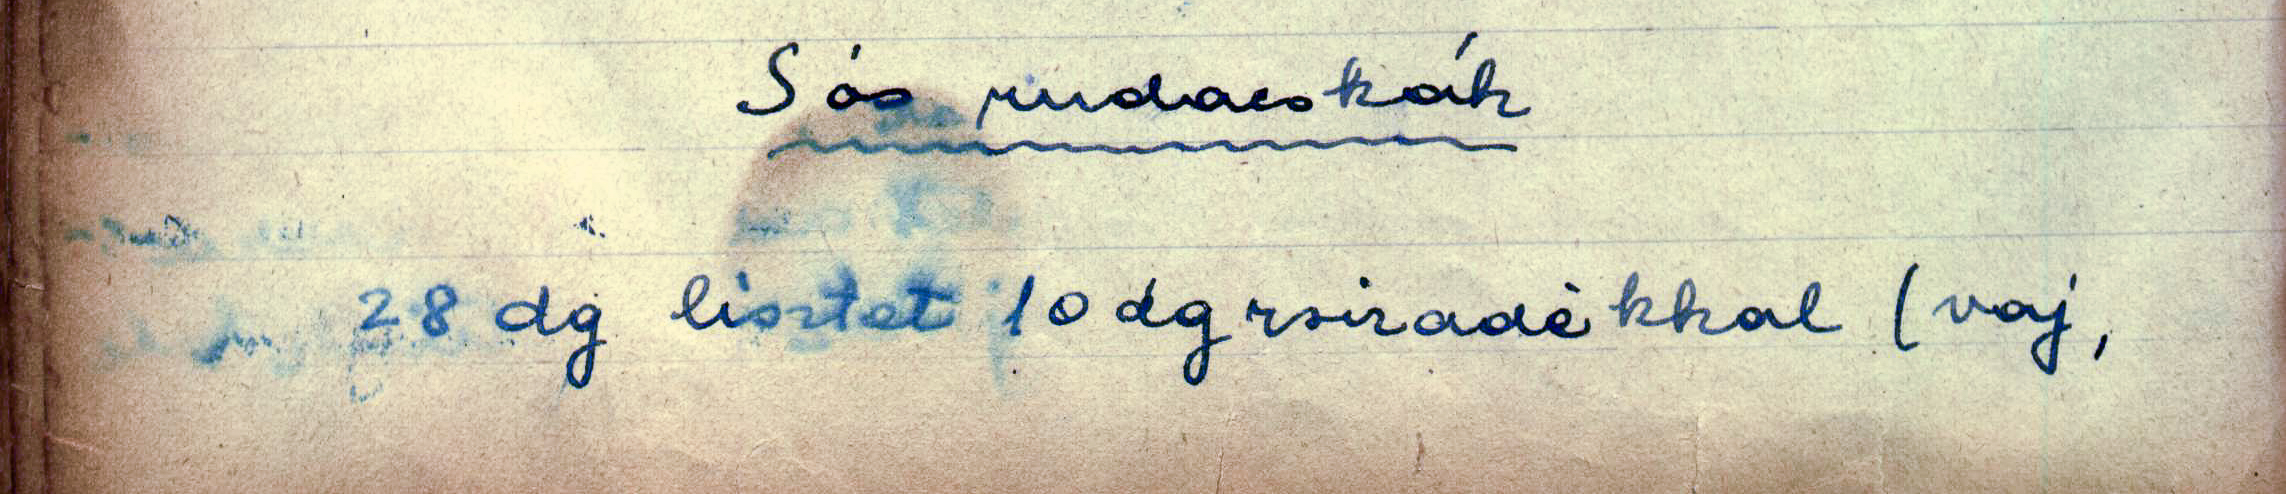 Sós rudacskák
28 dg lisztet 10 dg zsiradékkal (vaj,